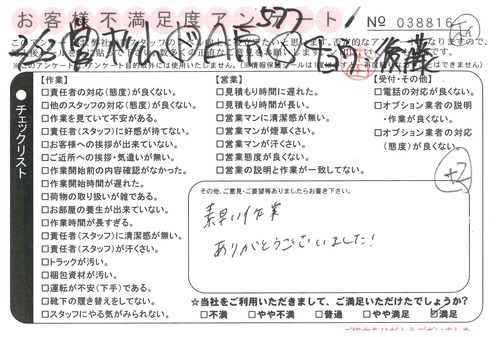 お客様不満足度アンケート
No 038816
チェックリスト
【作業】
□責任者の対応(態度)が良くない。
□他のスタッフの対応(態度)が良くない。
□作業を見ていて不安がある。
□責任者(スタッフ)に好感が持てない。
□お客様への挨拶が出来ていない。
□ご近所への挨拶・気遣いが無い。
□作業開始前の内容確認がなかった。
□作業開始時間が遅れた。
□荷物の取り扱いが雑である。
□お部屋の養生が出来ていない。
□作業時間が長すぎる。
□責任者(スタッフ)に清潔感が無い。
□責任者(スタッフ)が汗くさい。
□トラックが汚い。
□梱包資材が汚い。
□運転が不安(下手)である。
□靴下の履き替えをしてない。
□スタッフにやる気がみられない。
【営業】
□見積もり時間に遅れた。
□見積もり時間が長い。
□営業マンに清潔感が無い。
□営業マンが煙草くさい。
□営業マンが汗くさい。
□営業態度が良くない。
□営業の説明と作業が一致してない。
【受付・その他】
□電話の対応が良くない。
□オプション業者の説明
・作業が良くない。
□オプション業者の対応
(態度)が良くない。
+2
その他、ご意見・ご要望等ありましたらお書き下さい。
素早い作業
ありがとうございました!
☆当社をご利用いただきまして、ご満足いただけたでしょうか?
□不満 □やや不満 □普通 □やや満足 ☑満足
ご協力ありがとうございました